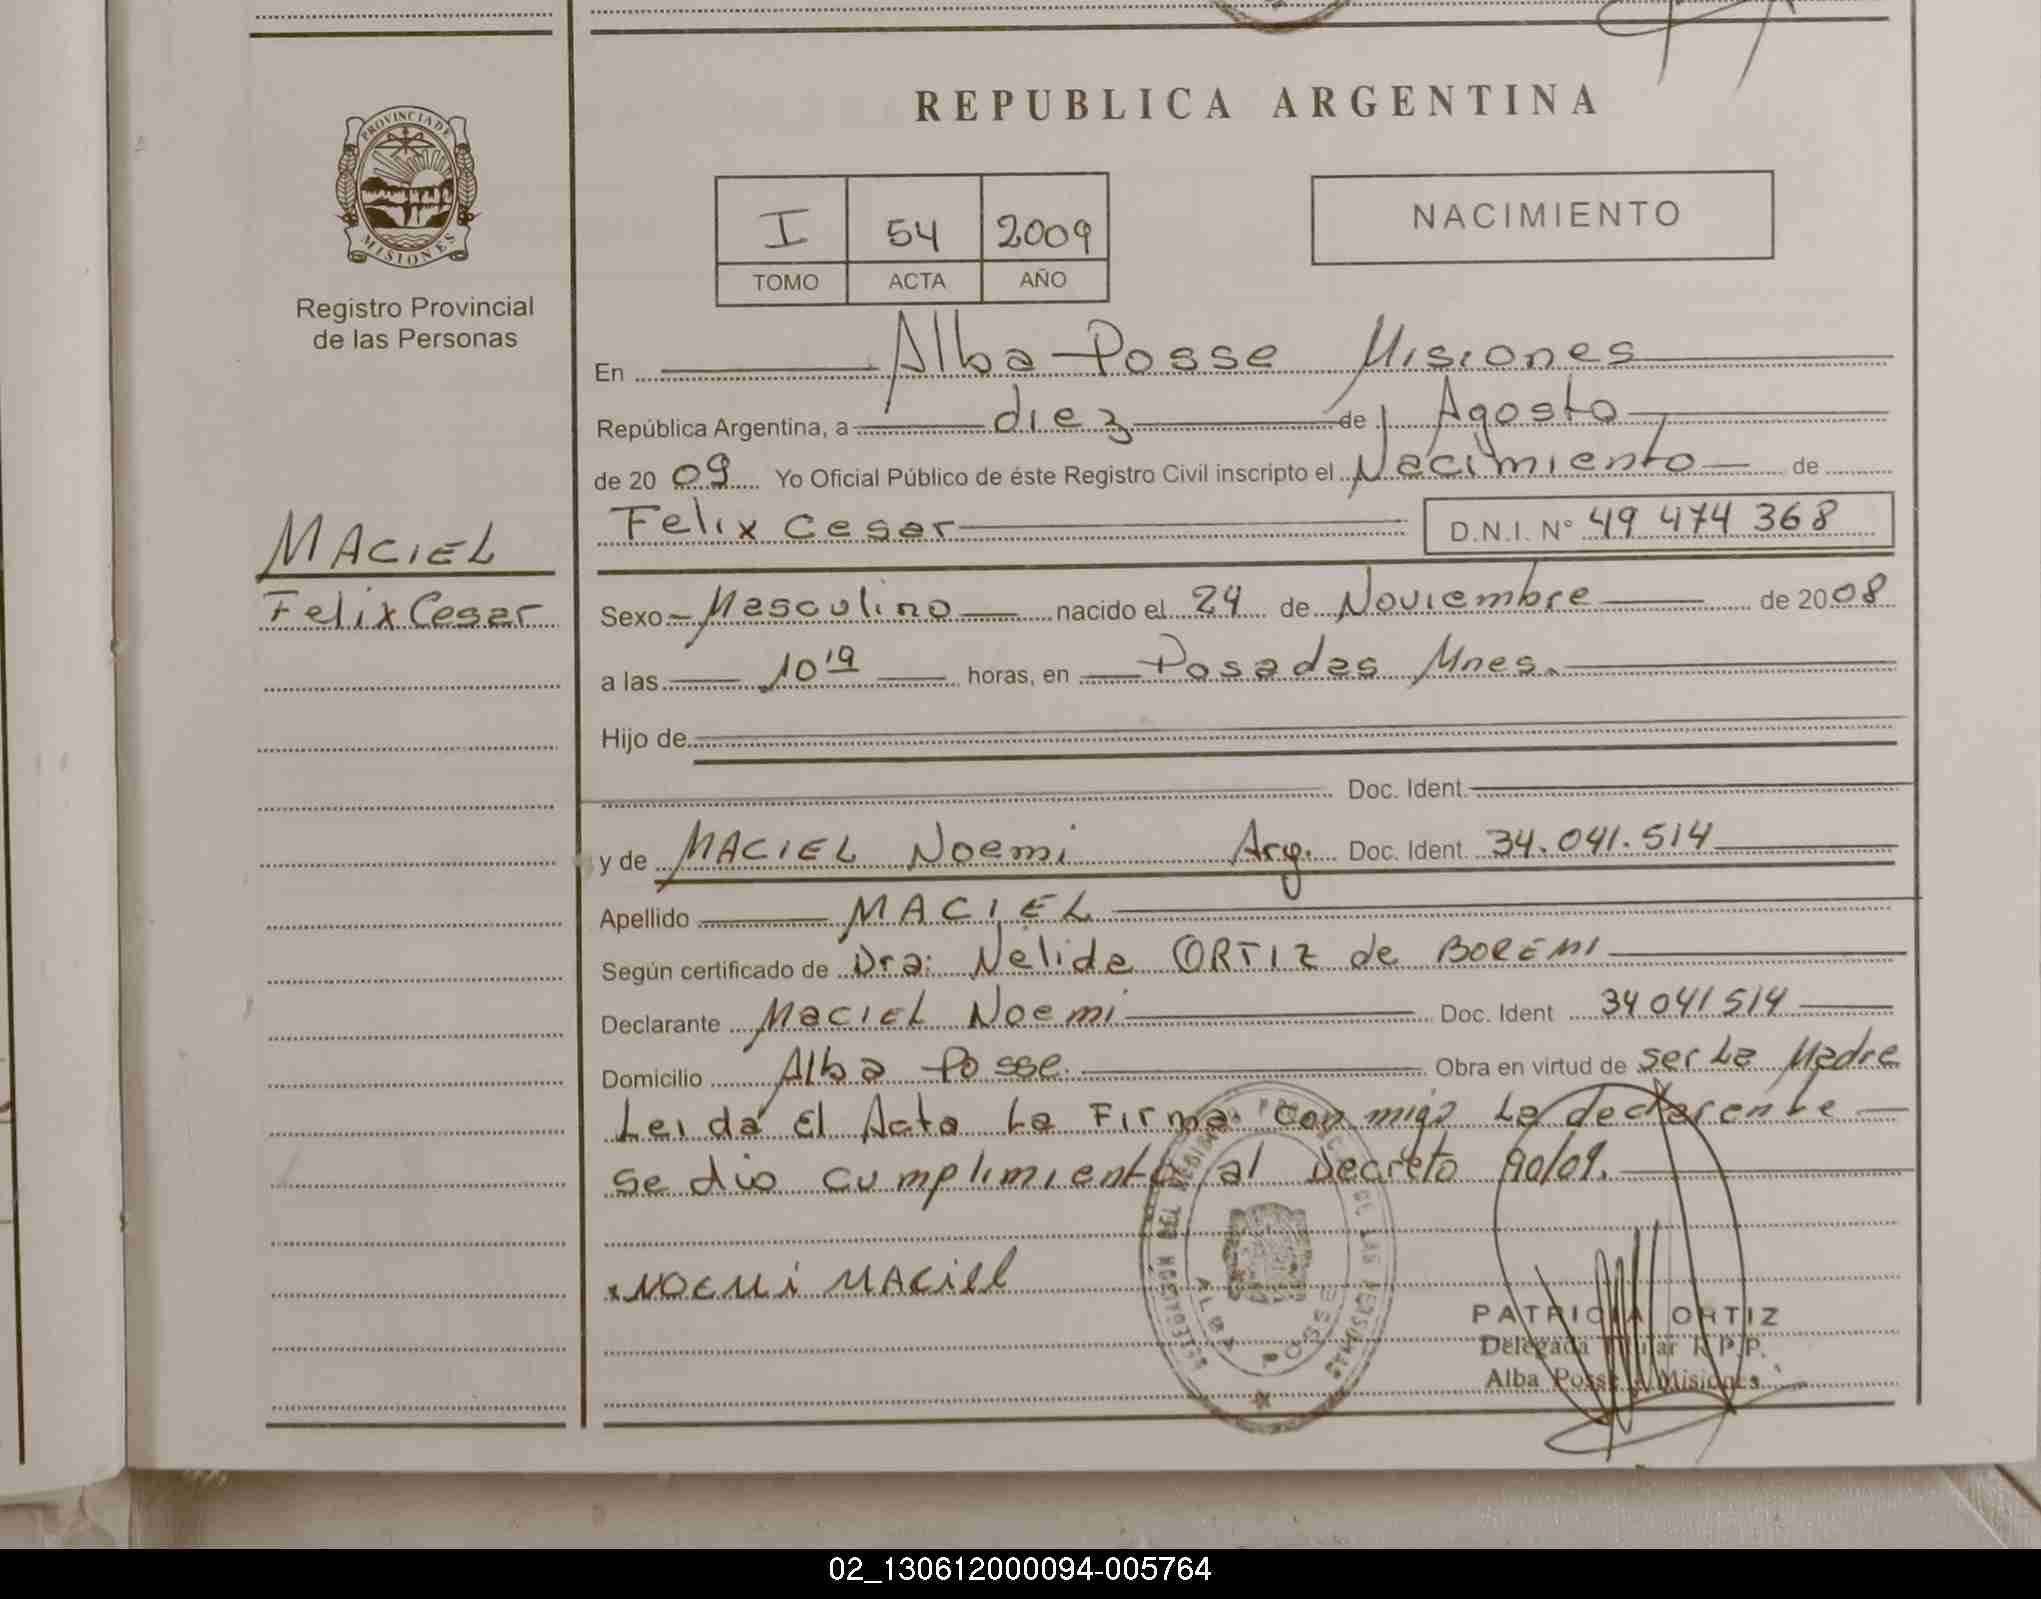 REPUBLICA ARGENTINA
PROVINCIA DE
MISIONES
Registro Provincial
de las Personas
I 54 2009
TOMO ACTA AÑO
NACIMIENTO
En Alba Posse Misiones
República Argentina, a diez de Agosto
de 2009 Yo Oficial Público de éste Registro Civil inscripto el Nacimiento de
Felix Cesar D.N.I. N° 49 474 368
MACIEL
Felix Cesar
Sexo Masculino nacido el 24 de Noviembre de 2008
a las 10 19 horas, en Posadas Mnes.
Hijo de
Doc. Ident.
y de MACIEL Noemi Arg. Doc. Ident. 34.041.514
Apellido MACIEL
Según certificado de Dra: Nelida ORTIZ de BOREMI
Declarante MACIEL Noemi Doc. Ident 34 041 514
Domicilio Alba Posse. Obra en virtud de ser La Madre
Leida El Acta La Firma conmigo La declarante
se dio cumplimiento al Decreto 90/09.
NOEMI MACIEL
ALBA POSSE
PATRICIA ORTIZ
Delegada Titular R.P.P.
Alba Posse Misiones
02_130612000094-005764